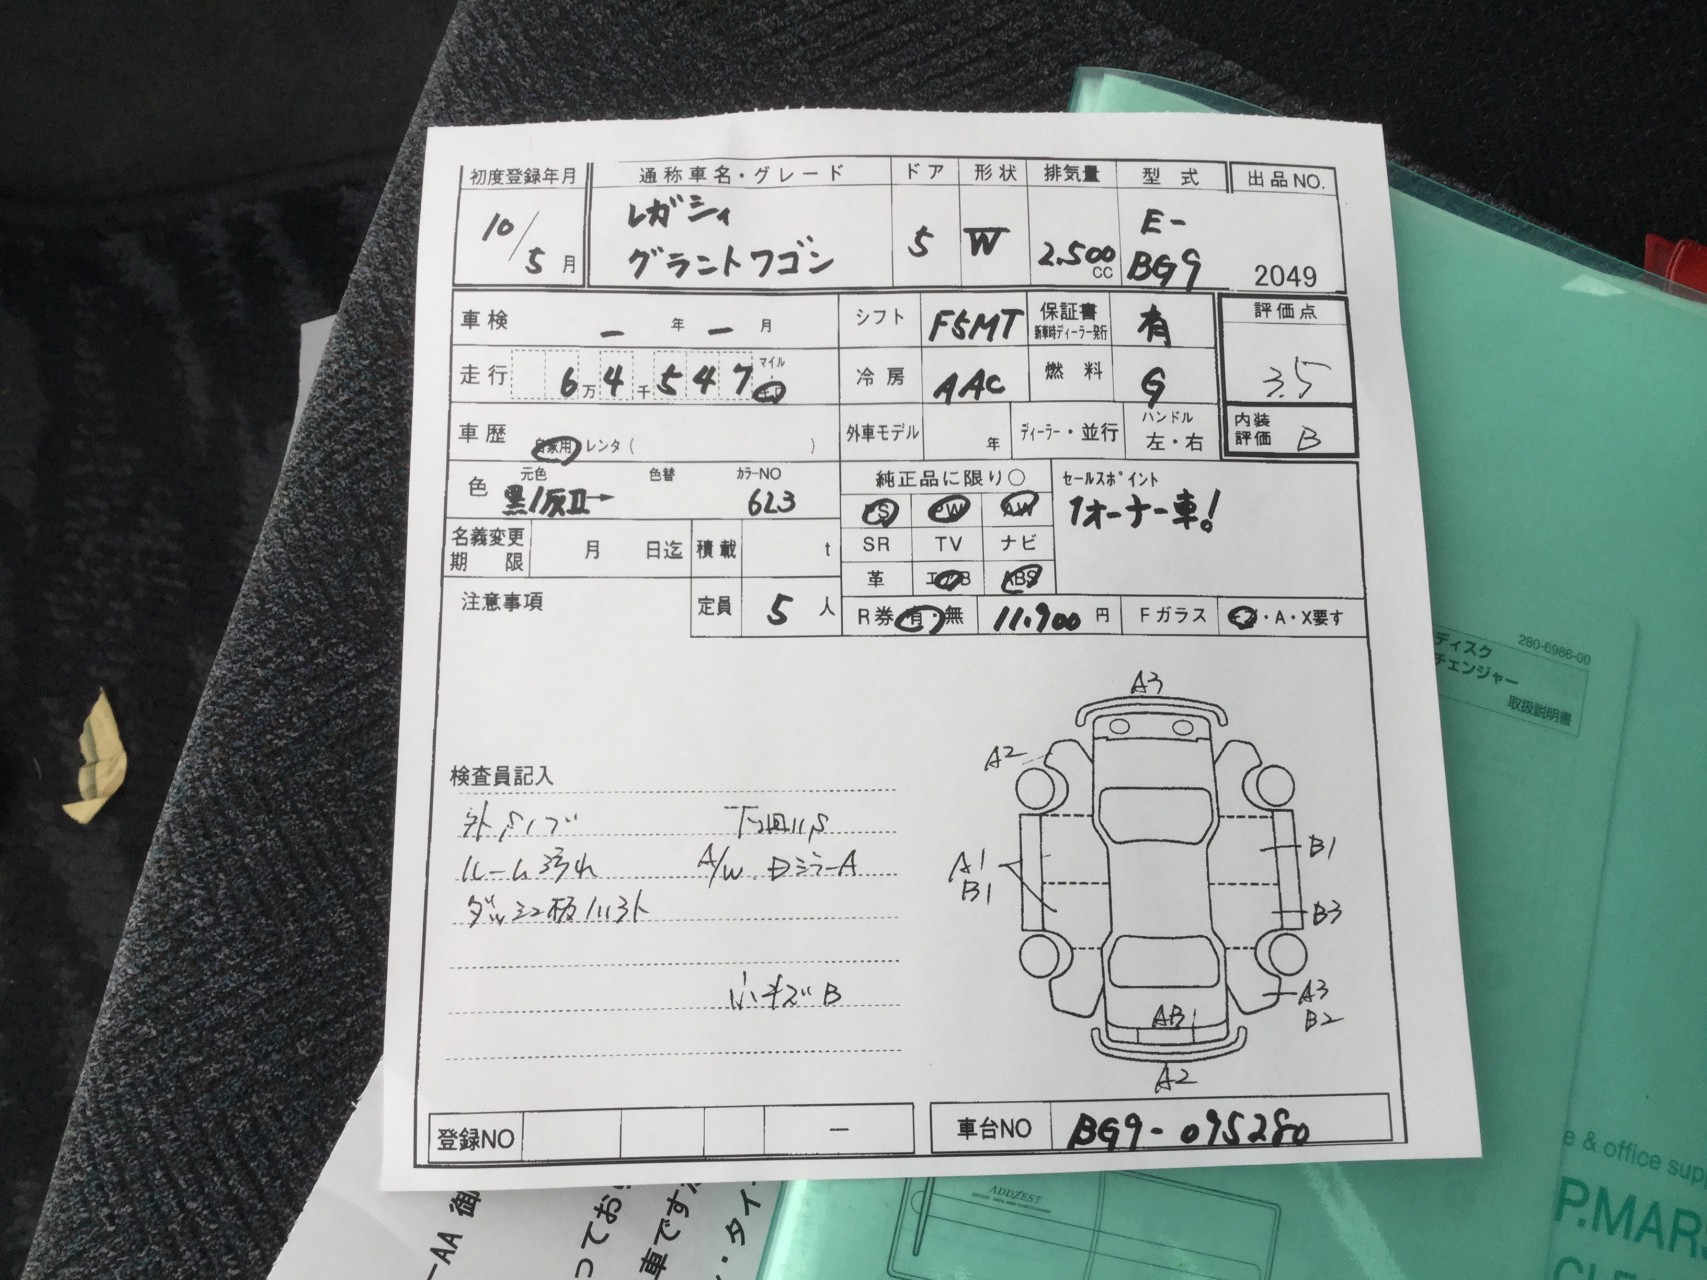 初度登録年月 通称車名・グレード ドア 形状 排気量 型式 出品NO.
10/5月 レガシィ グラントワゴン 5 W 2,500cc E-BG9 2049
車検 ー年ー月 シフト F5MT 保証書 新車時ディーラー発行 有 評価点
走行 6万4千547 マイル 冷房 AAC 燃料 G 3.5
車歴 自家用 レンタ( ) 外車モデル 年 ディーラー・並行 ハンドル 左・右 内装評価 B
色 元色 色替 カラーNO 純正品に限り○ セールスポイント
黒/灰II→ 623 PS PW AW 1オーナー車!
名義変更期限 月 日迄 積載 t SR TV ナビ
革 エアB ABS
注意事項 定員 5人 R券 有・無 11,900円 Fガラス ・A・X要す
A3
A2
検査員記入
ルーム汚れ A/W
A1
B1
B1
B3
小キズB
A3
B2
AB1
A2
登録NO ー 車台NO BG9-095280
ディスク
チェンジャー
280-6986-00
取扱説明書
ADDZEST
e & office sup
P.MAR
ーAA 御
ってお
車です
・タイ